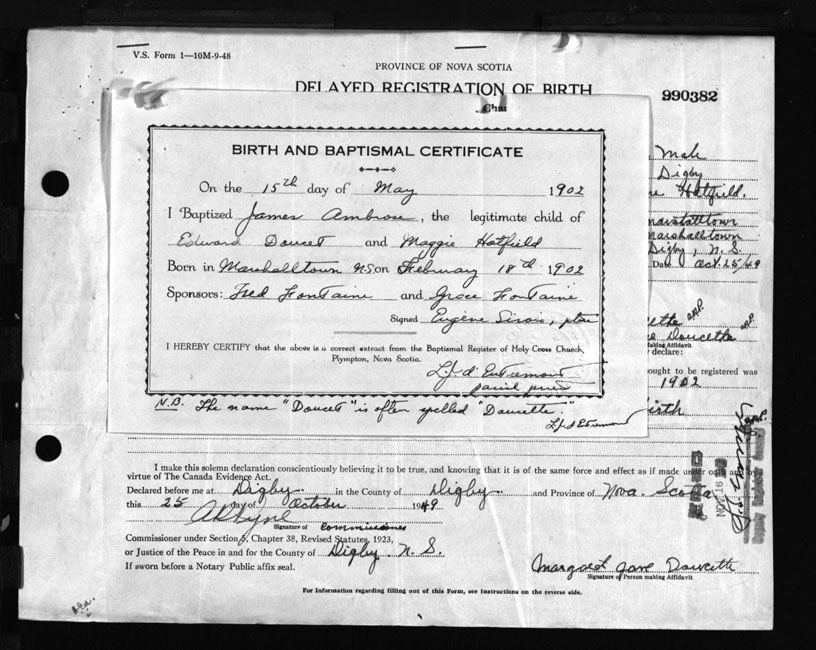 V.S. Form 1—10M-9-48
PROVINCE OF NOVA SCOTIA
DELAYED REGISTRATION OF BIRTH
990382
BIRTH AND BAPTISMAL CERTIFICATE
On the 15th day of May 1902
I Baptized James Ambrose, the legitimate child of
Edward Doucet and Maggie Hatfield
Born in Marshalltown N.S. on February 18th 1902
Sponsors: Fred Fontaine and Grace Fontaine
Signed Eugène Sirois, ptre
I HEREBY CERTIFY that the above is a correct extract from the Baptismal Register of Holy Cross Church,
Plympton, Nova Scotia.
L.J. d'Entremont
parish priest
N.B. The name "Doucet" is often spelled "Doucette."
L.J. d'Entremont
Male
Digby
Hatfield.
Marshalltown
Digby, N.S.
Date Oct. 25/49
Doucette
Making Affidavit
declare:
ought to be registered was
1902
birth
I make this solemn declaration conscientiously believing it to be true, and knowing that it is of the same force and effect as if made under oath and by
virtue of The Canada Evidence Act.
Declared before me at Digby in the County of Digby and Province of Nova Scotia
this 25 day of October 1949
Signature of Commissioner
Commissioner under Section 5, Chapter 38, Revised Statutes, 1923,
or Justice of the Peace in and for the County of Digby N.S.
If sworn before a Notary Public affix seal.
Margaret Jane Doucette
Signature of Person making Affidavit
For Information regarding filling out of this Form, see Instructions on the reverse side.